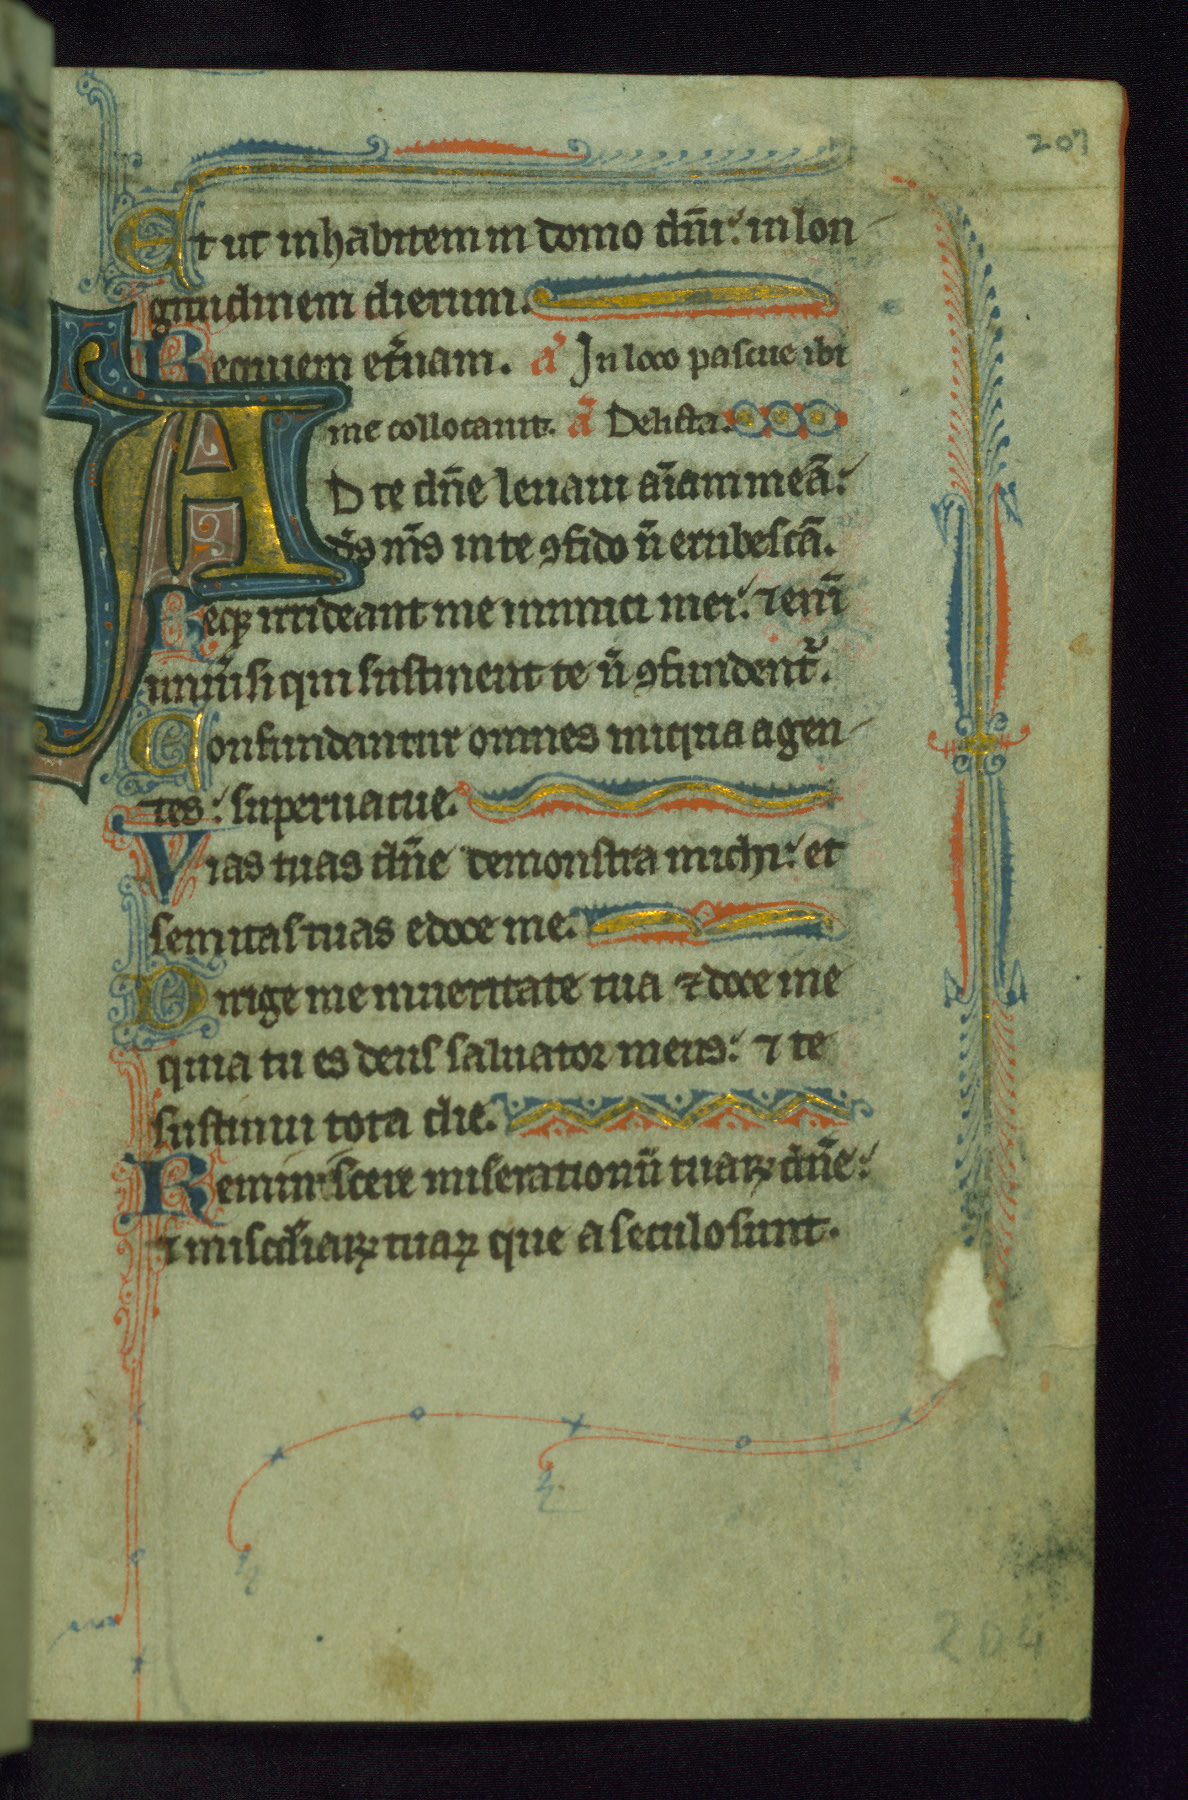 207
Et ut inhabitem in domo dn̄i: in lon
gitudinem dierum.
Requiem et̄nam. a' In loco pascue ibi
me collocauit. a' Delicta.
AD te dn̄e leuaui aīam meā:
ds̄ ms̄ in te ꝯfido n̄ erubescā.
Neqꝫ irrideant me inimici mei: ⁊ enī
uniu̾si qui sustinent te n̄ ꝯfundent᷑.
Confundantur omnes iniqua agen
tes: superuacue.
Vias tuas dn̄e demonstra michi: et
semitas tuas edoce me.
Dirige me in ueritate tua ⁊ doce me
quia tu es deus saluator meus: ⁊ te
sustinui tota die.
Reminiscere miserationū tuaꝝ dn̄e:
⁊ miscd̄iaꝝ tuaꝝ que a seculo sunt.
204